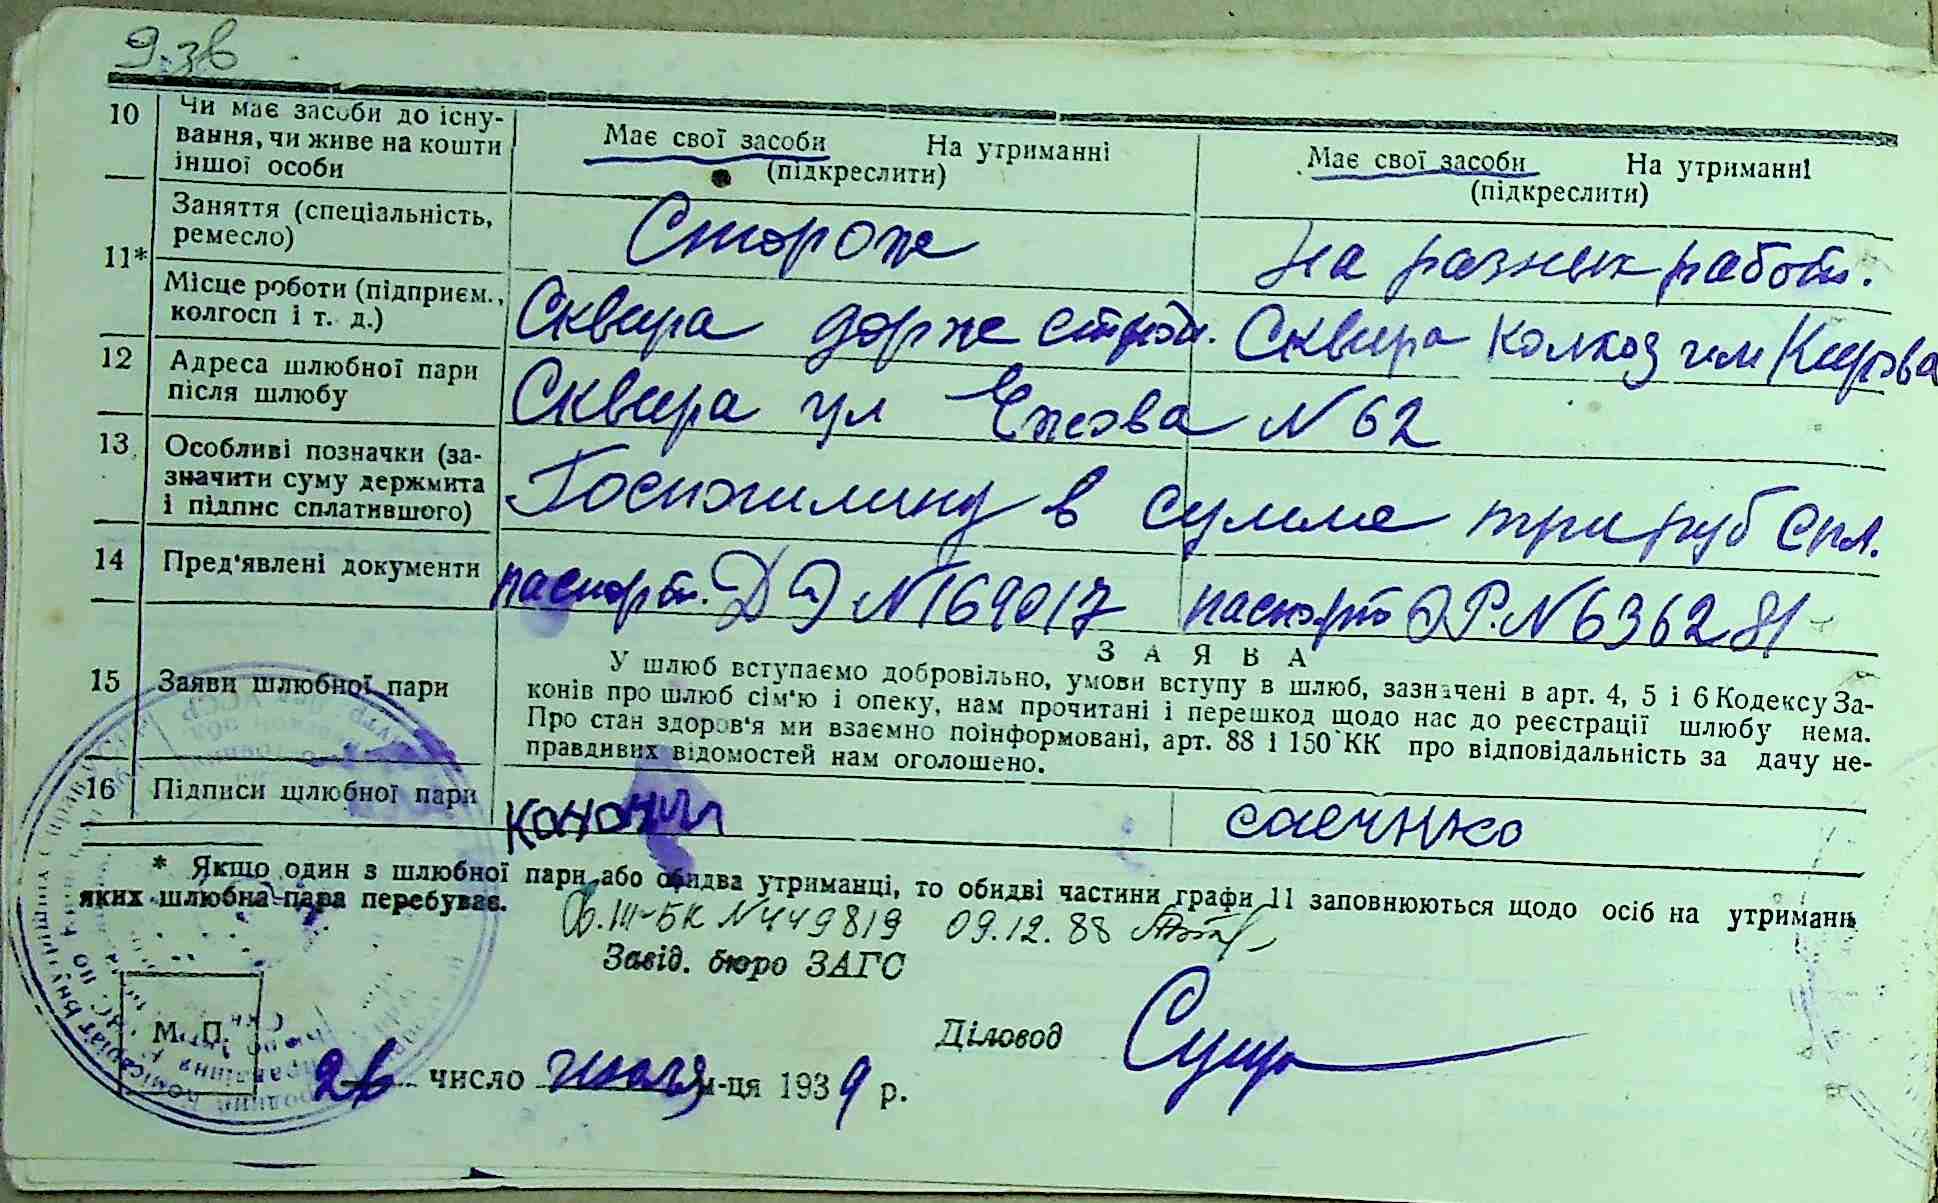 9.зв
10 Чи має засоби до існу-
вання, чи живе на кошти
іншої особи
Має свої засоби На утриманні
(підкреслити)
Має свої засоби На утриманні
(підкреслити)
11* Заняття (спеціальність,
ремесло)
Сторож
На разних работ.
Місце роботи (підприєм.,
колгосп і т. д.)
Сквира
Сквира Колхоз им Кирова
12 Адреса шлюбної пари
після шлюбу
Сквира ул Ежова N 62
13 Особливі позначки (за-
значити суму держмита
і підпис сплатившого)
Госпошлину в сумме три руб Спл.
14 Пред'явлені документи
паспорт. ДЭ N 169017
паспорт ЭР. N 636281
15 Заяви шлюбної пари
ЗАЯВА
У шлюб вступаємо добровільно, умови вступу в шлюб, зазначені в арт. 4, 5 і 6 Кодексу За-
конів про шлюб сім'ю і опеку, нам прочитані і перешкод щодо нас до реєстрації шлюбу нема.
Про стан здоров'я ми взаємно поінформовані, арт. 88 і 150 КК про відповідальність за дачу не-
правдивих відомостей нам оголошено.
16 Підписи шлюбної пари
* Якщо один з шлюбної пари або обидва утриманці, то обидві частини графи 11 заповнюються щодо осіб на утриманні
яких шлюбна пара перебуває.
III-БК N 449819 09.12.88
Завід. бюро ЗАГС
М. П.
Діловод
26 число июля м-ця 1939 р.